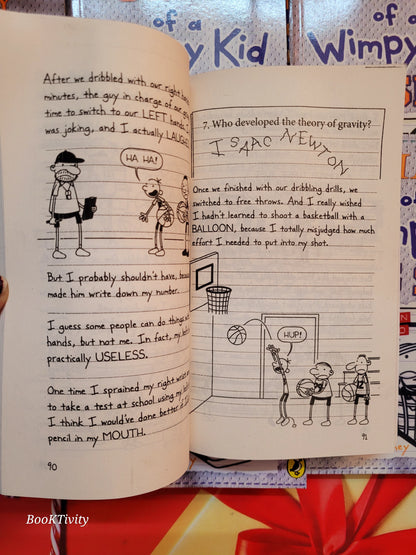 of a
y Kid
of
Wimpy
After we dribbled with our right hand
minutes, the guy in charge of our
time to switch to our LEFT hands. I
was joking, and I actually
HA HA!
But I probably shouldn't have,
made him write down my number.
I guess some people can do things
hands, but not me. In fact, my
practically USELESS.
One time I sprained my right
to take a test at school using my
I think I would've done better if I
pencil in my MOUTH.
90
7. Who developed the theory of gravity?
ISAAC NEWTON
Once we finished with our dribbling drills, we
switched to free throws. And I really wished
I hadn't learned to shoot a basketball with a
BALLOON, because I totally misjudged how much
effort I needed to put into my shot.
HUP!
91
BooKTivity